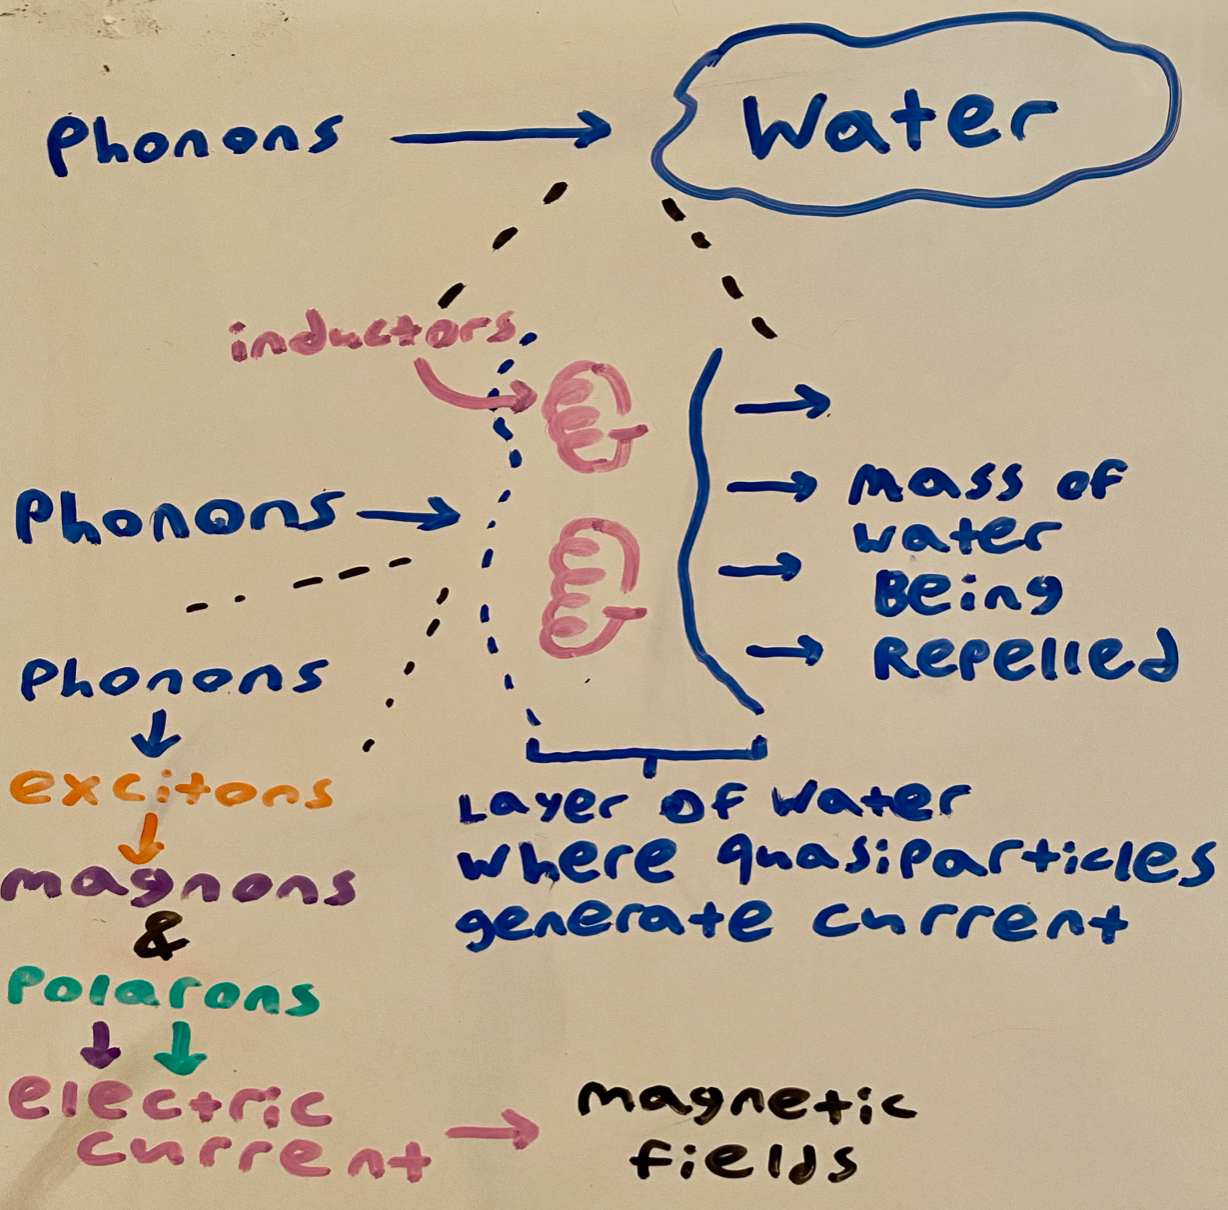 Phonons
Water
inductors
Phonons
mass of
water
Being
Repelled
Phonons
excitons
magnons
&
Polarons
electric
current
Layer of Water
where quasiparticles
generate current
magnetic
fields